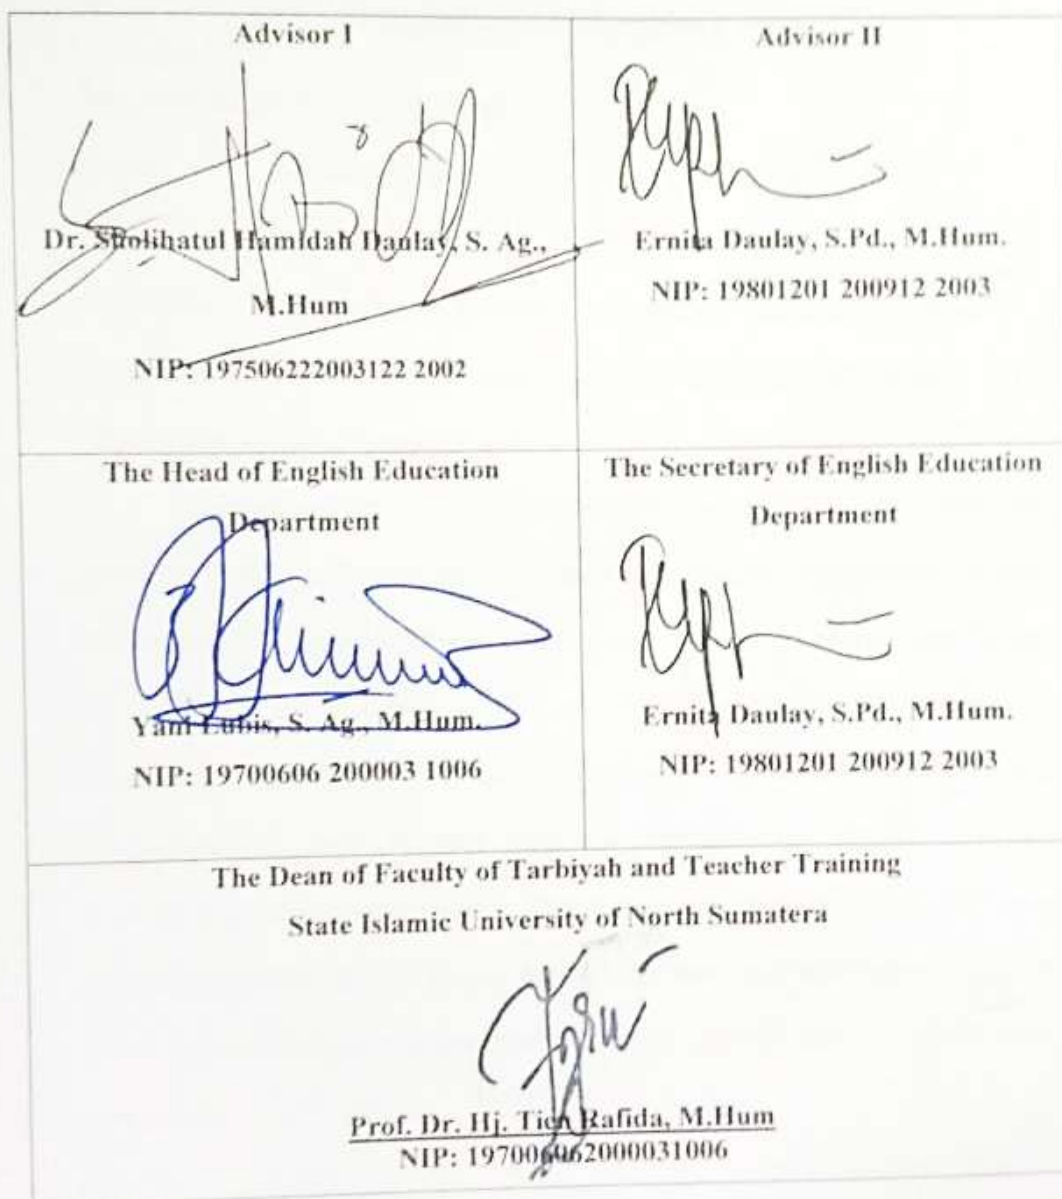 Advisor I
Dr. Sholihatul Hamidah Daulay, S. Ag.,
M.Hum
NIP: 197506222003122 2002
Advisor II
Ernita Daulay, S.Pd., M.Hum.
NIP: 19801201 200912 2003
The Head of English Education
Department
Yani Lubis, S. Ag., M.Hum.
NIP: 19700606 200003 1006
The Secretary of English Education
Department
Ernita Daulay, S.Pd., M.Hum.
NIP: 19801201 200912 2003
The Dean of Faculty of Tarbiyah and Teacher Training
State Islamic University of North Sumatera
Prof. Dr. Hj. Tien Rafida, M.Hum
NIP: 197006062000031006